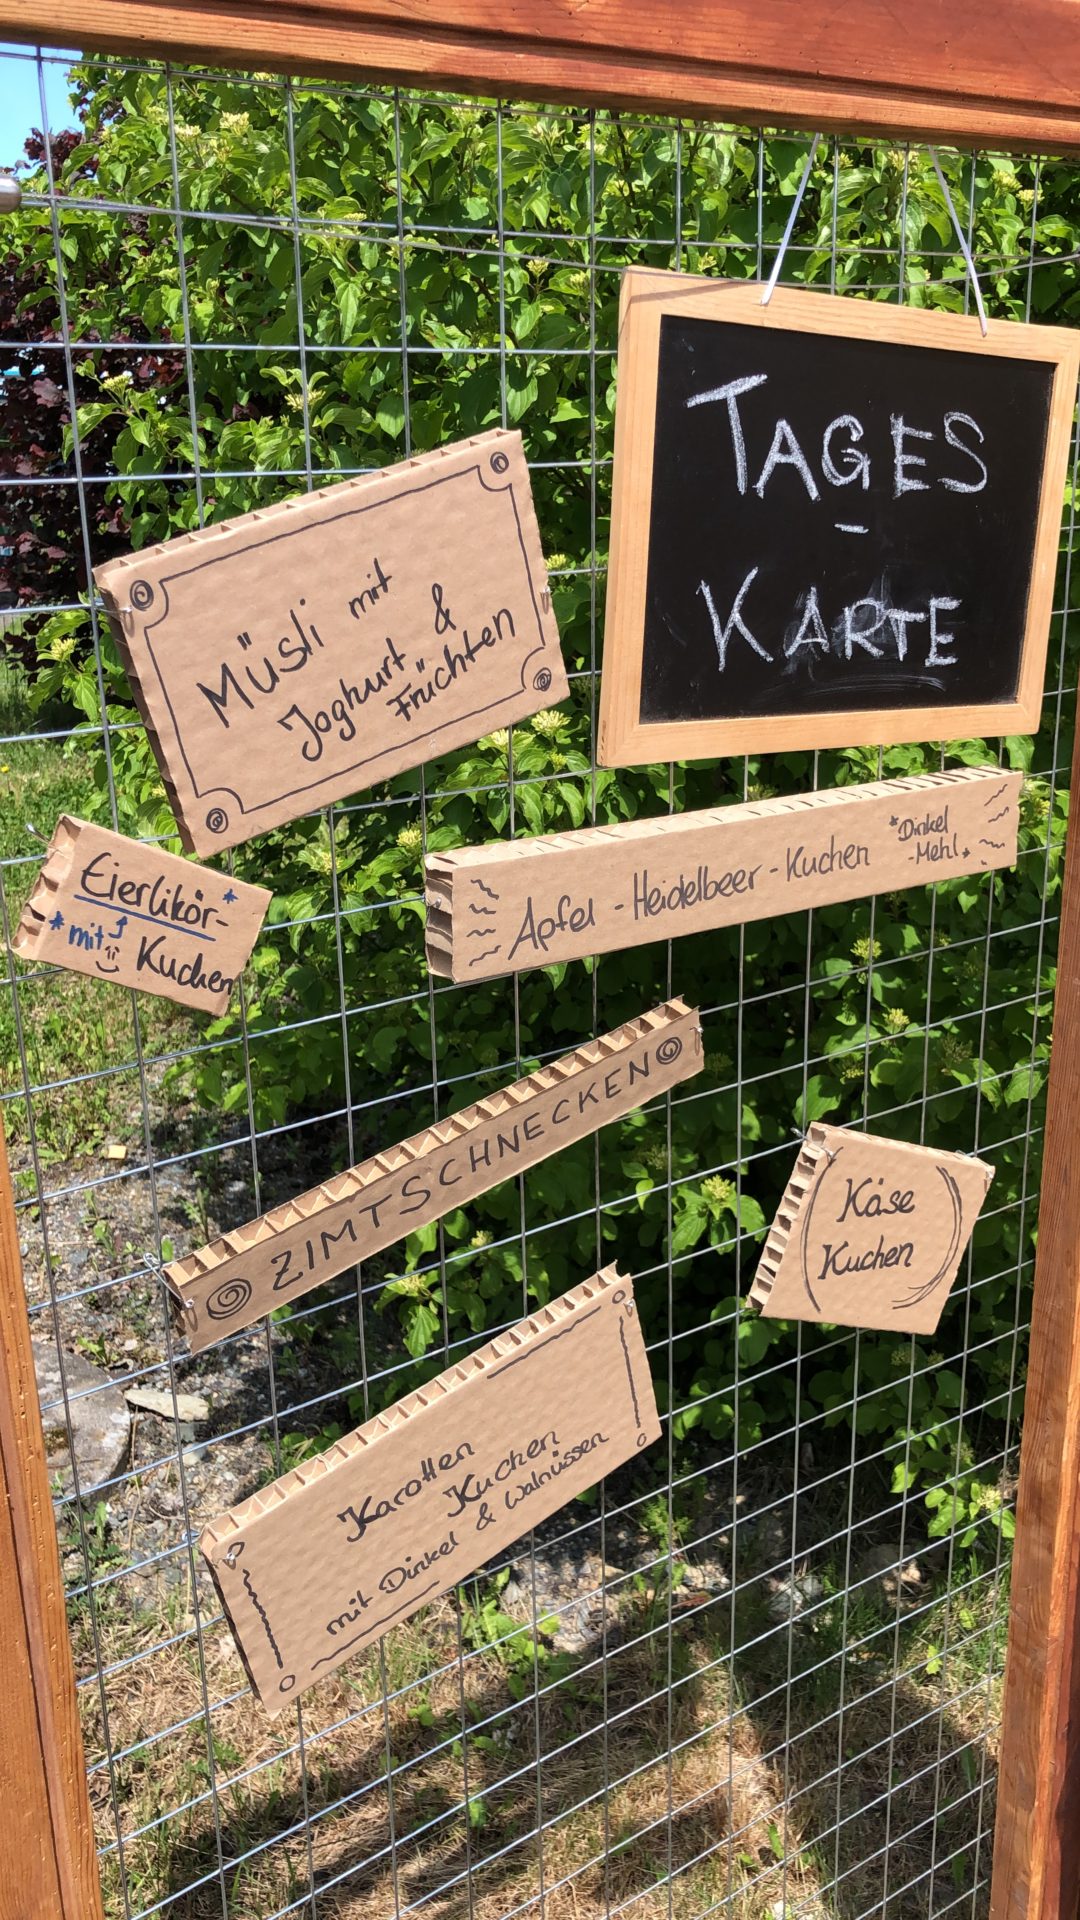 TAGES
-
KARTE
Müsli mit
Joghurt &
Früchten
Eierlikör-
*mit Kuchen
Apfel-Heidelbeer-Kuchen
*Dinkel
-Mehl*
ZIMTSCHNECKEN
Käse
Kuchen
Karotten
Kuchen
mit Dinkel & Walnüssen